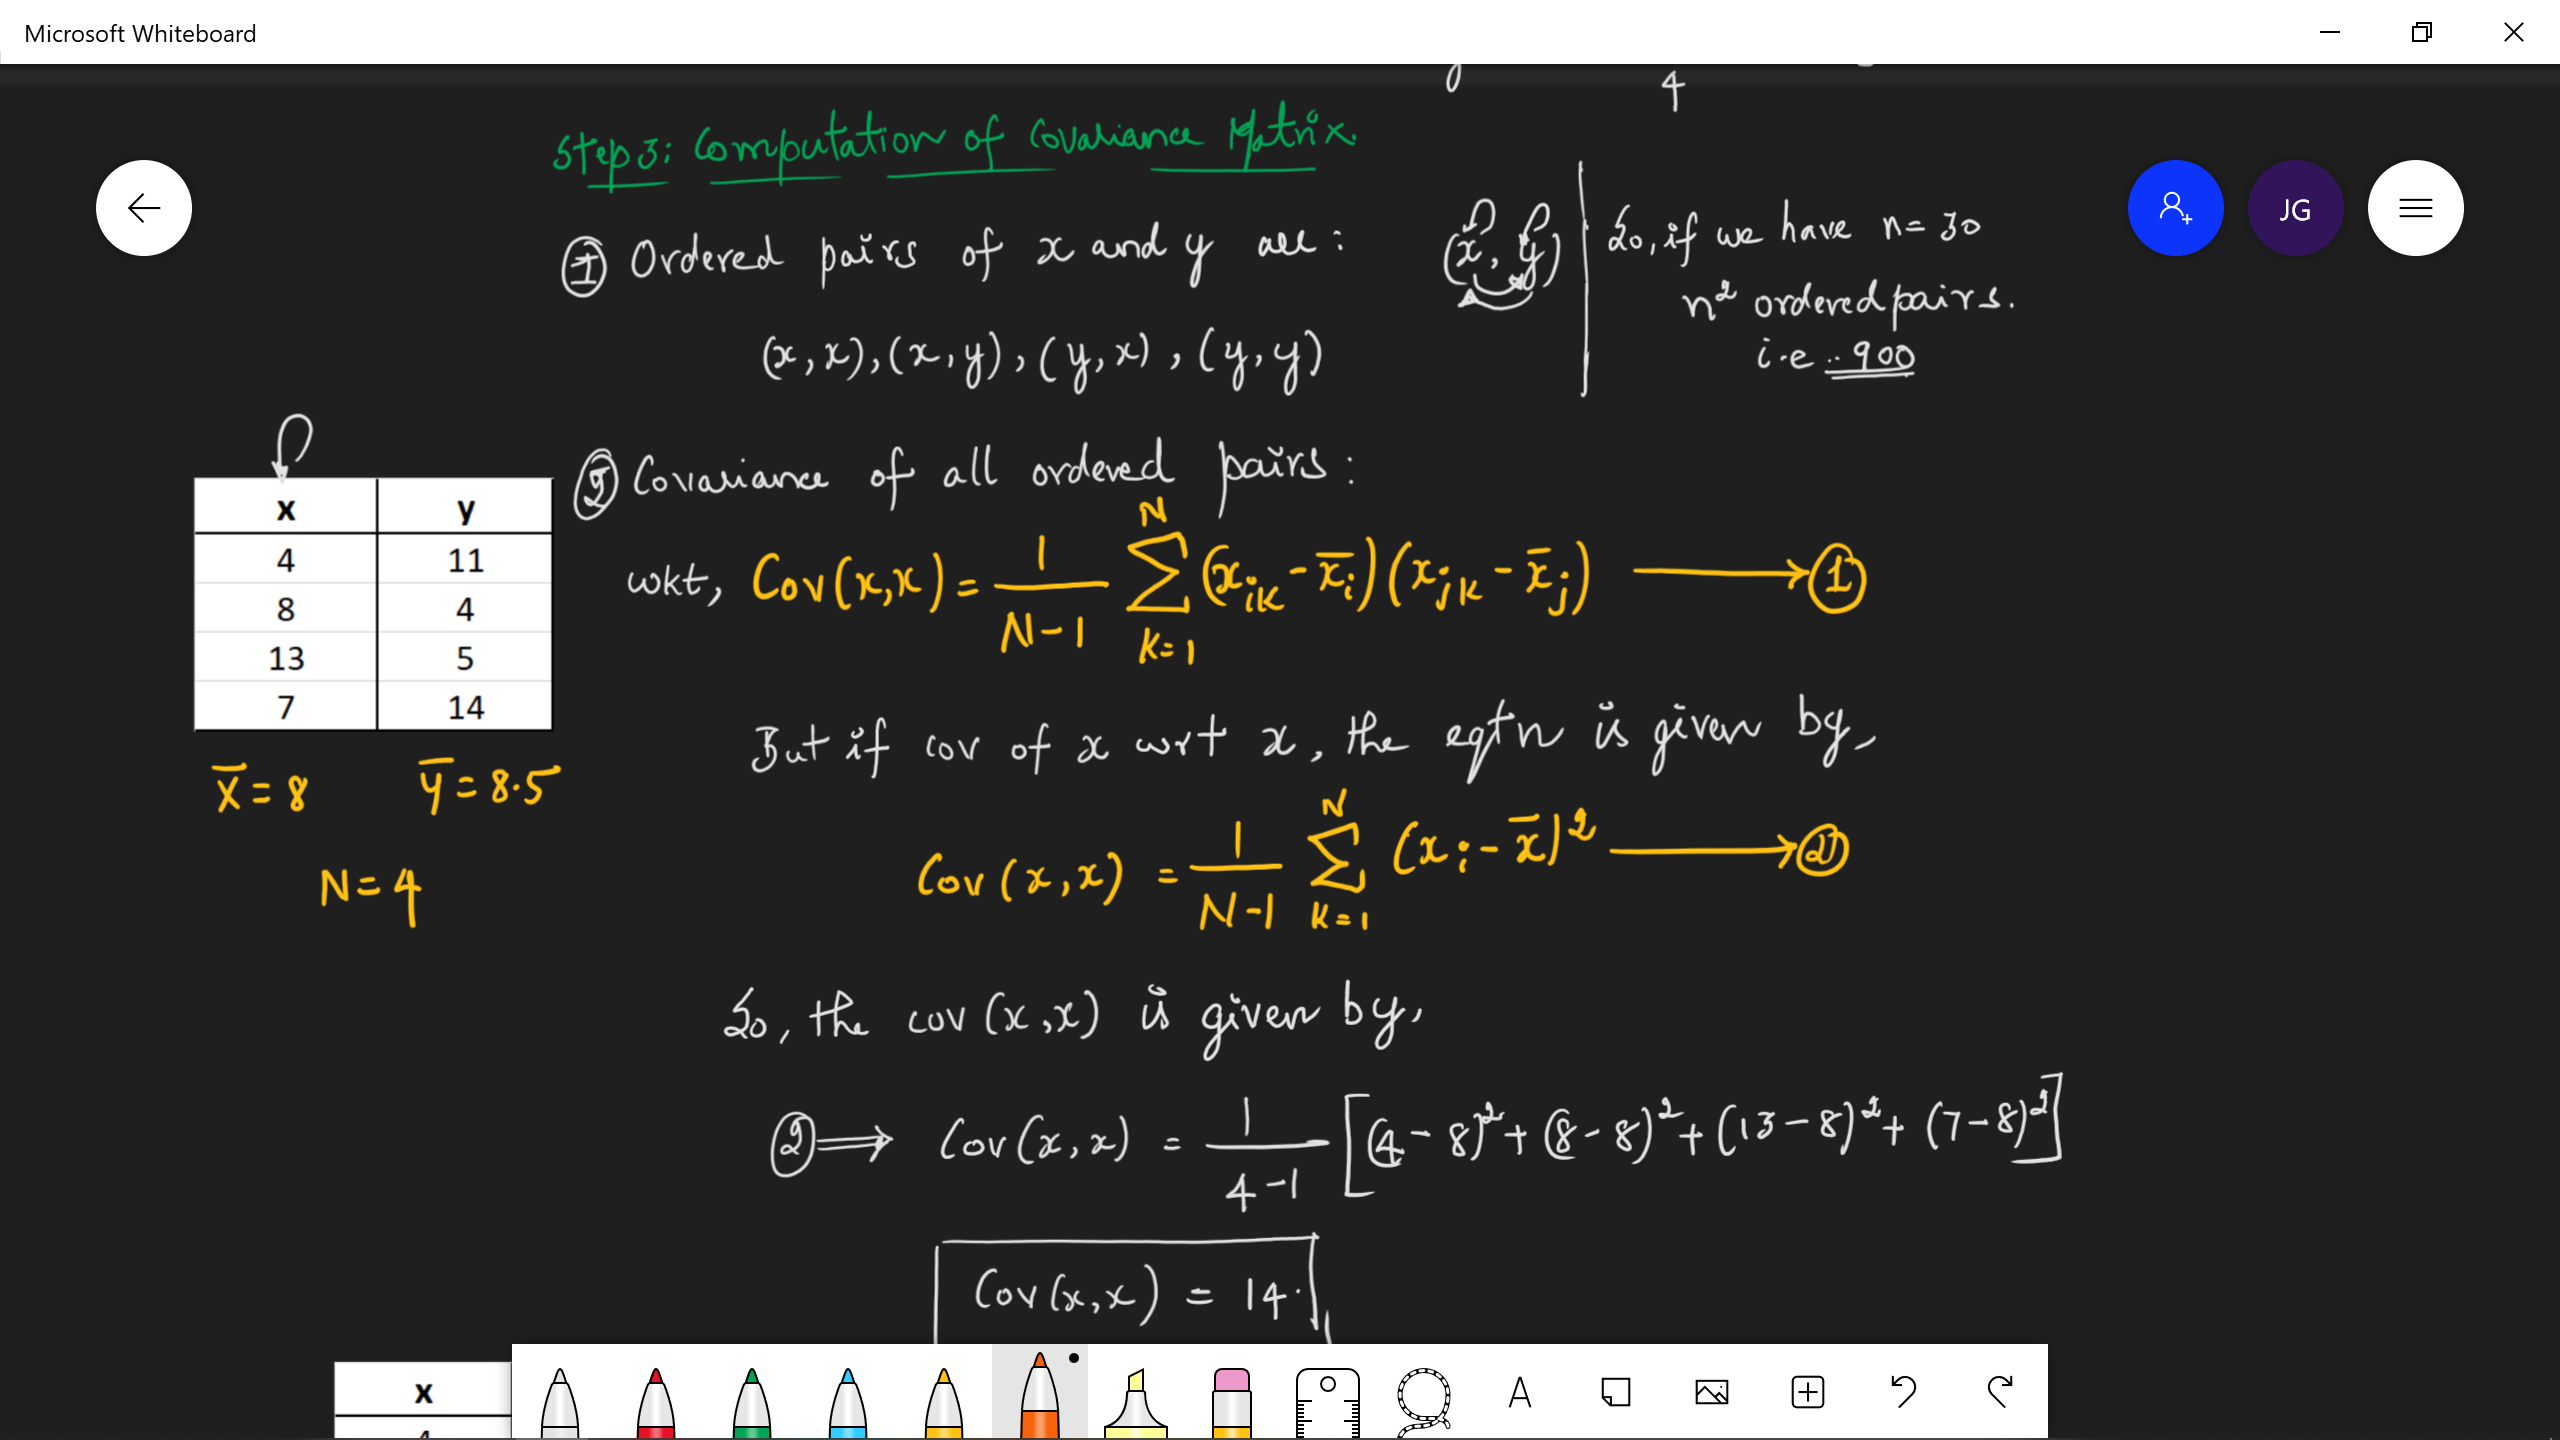 Microsoft Whiteboard
y 4
Step 3: Computation of Covariance Matrix.
JG
① Ordered pairs of x and y are :
(x, y)
(x, x), (x, y), (y, x), (y, y)
So, if we have n = 30
n² ordered pairs.
i.e .. 900
x y
4 11
8 4
13 5
7 14
X̅ = 8 Y̅ = 8.5
N = 4
② Covariance of all ordered pairs :
wkt, Cov(x,x) = 1/(N-1) ∑_{K=1}^{N} (x_{iK} - x̅_i)(x_{jK} - x̅_j) ⟶ ①
But if cov of x wrt x, the eqtn is given by,
Cov(x,x) = 1/(N-1) ∑_{K=1}^{N} (x_i - x̅)² ⟶ ②
So, the cov(x,x) is given by,
② ⟹ Cov(x,x) = 1/(4-1) [(4-8)² + (8-8)² + (13-8)² + (7-8)²]
Cov(x,x) = 14.
x
4